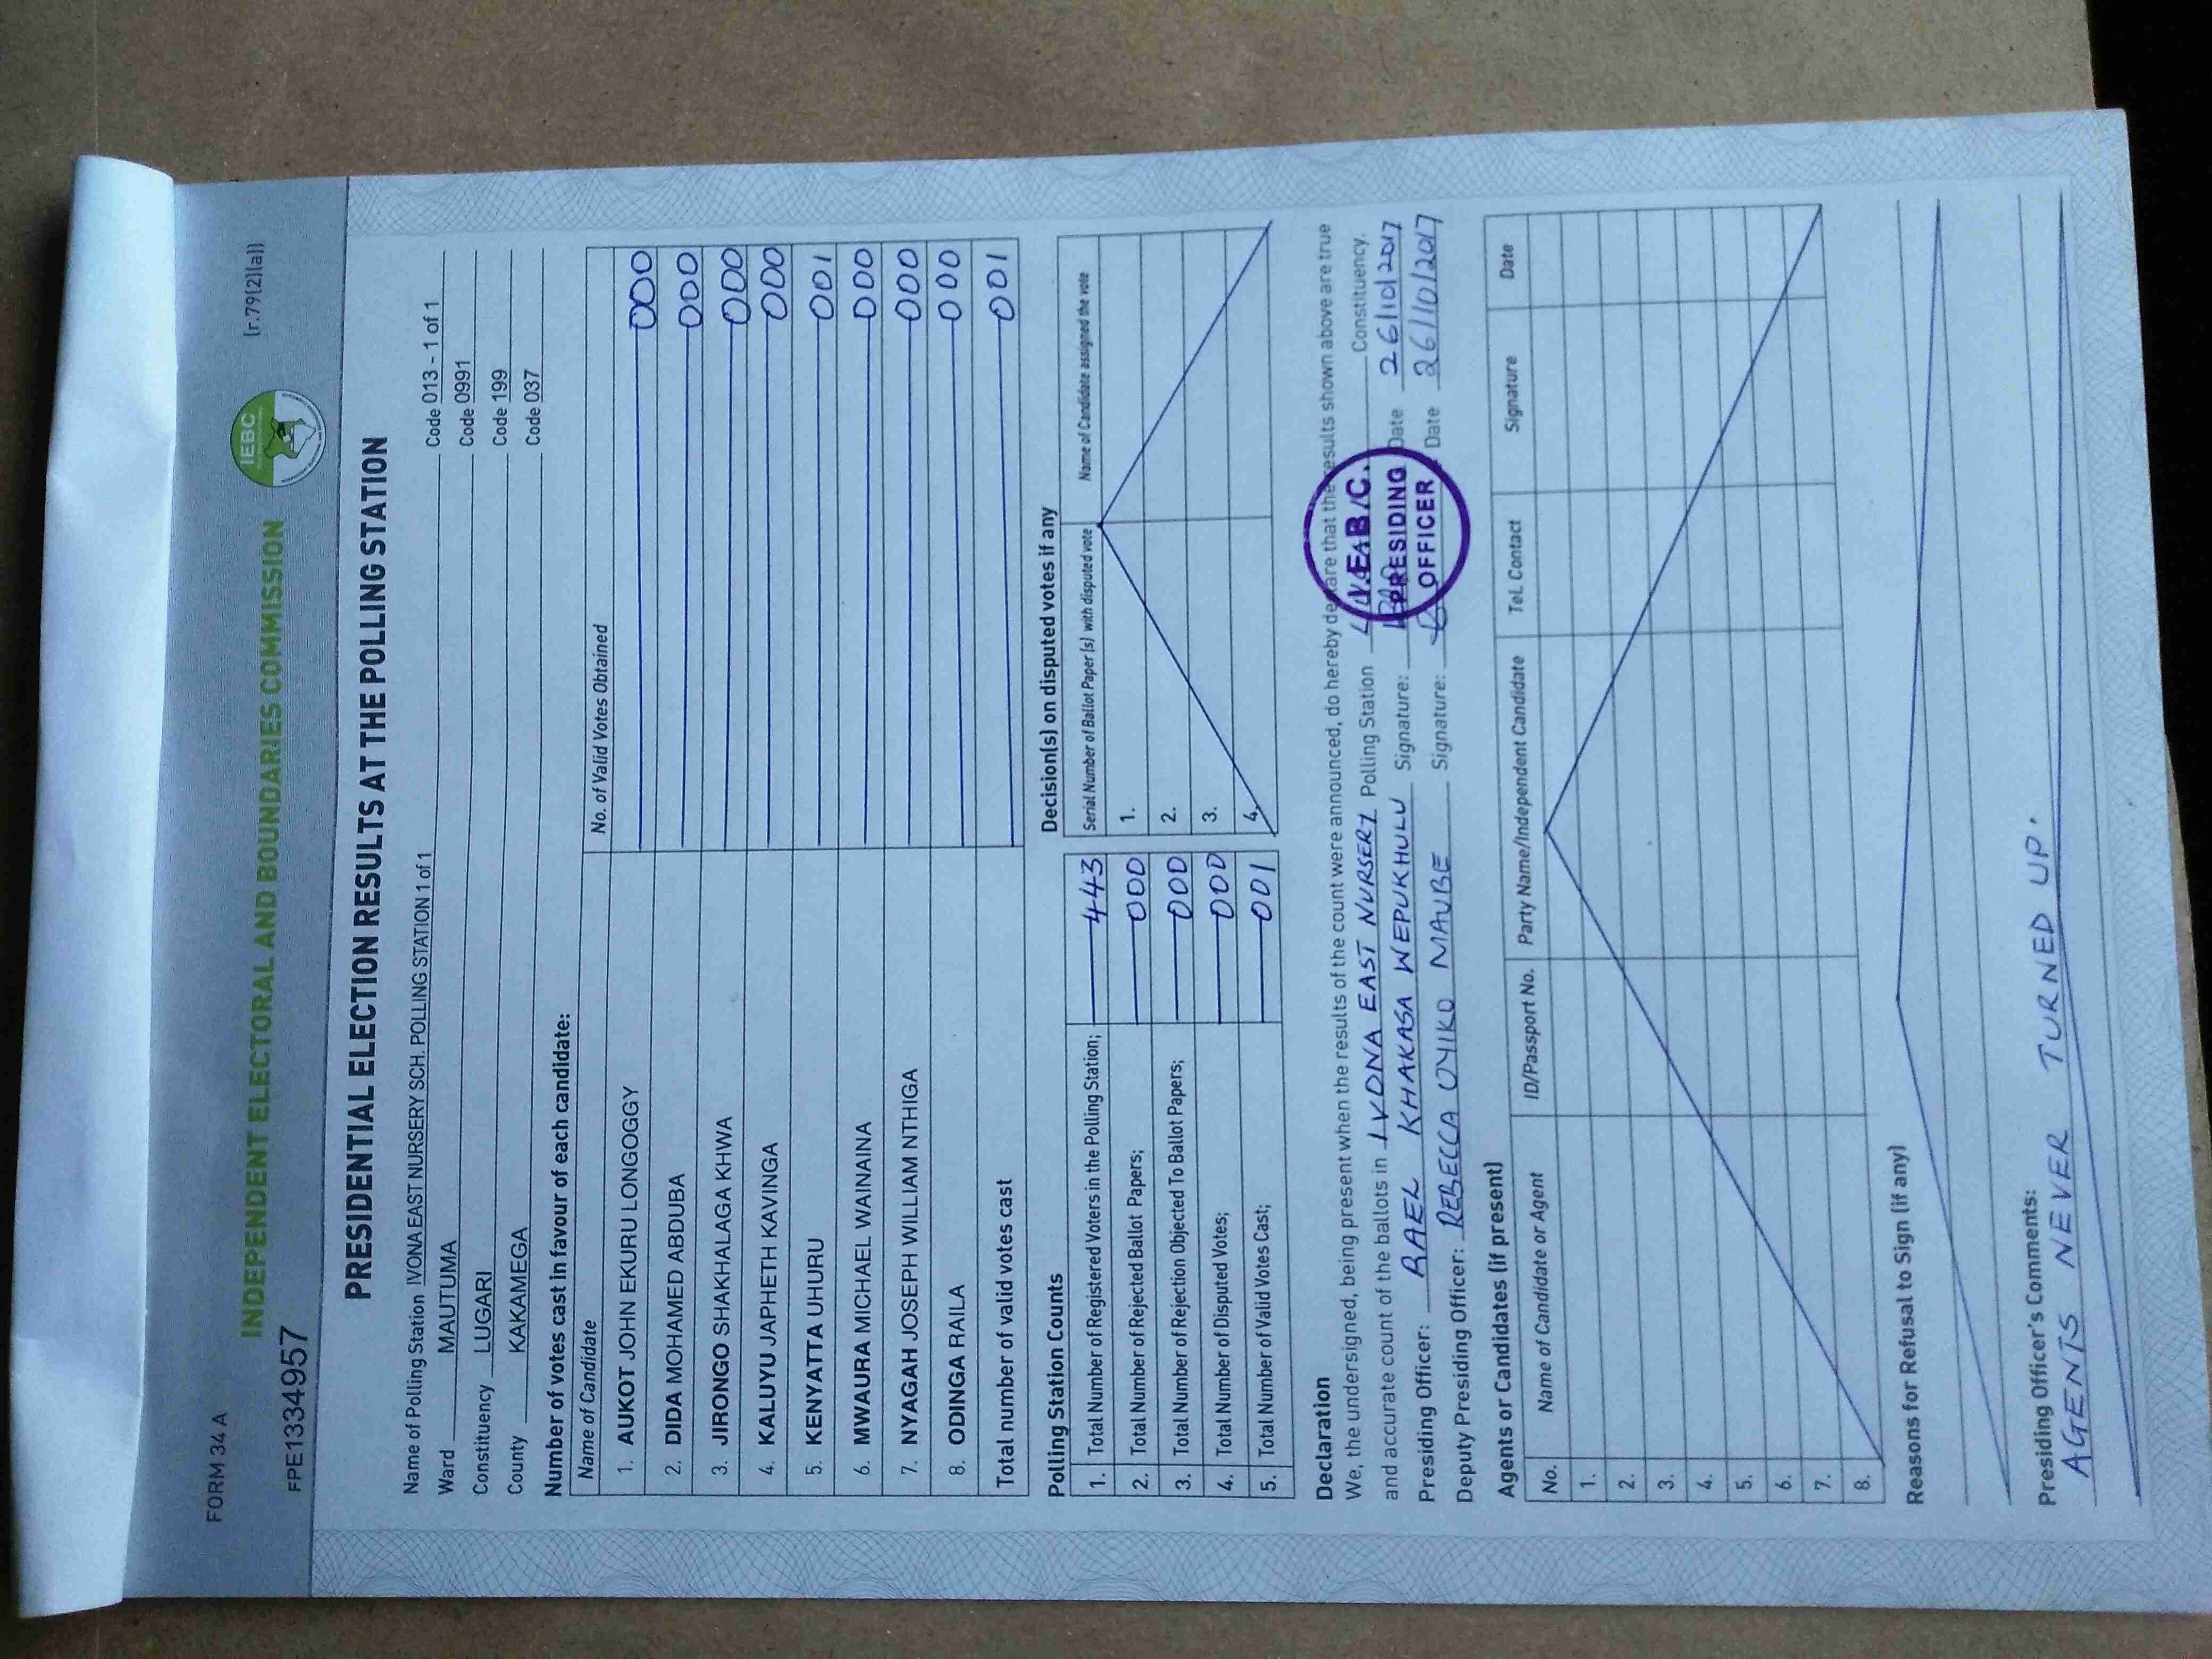 FORM 34 A
(r.79(2)(a))
IEBC
INDEPENDENT ELECTORAL AND BOUNDARIES COMMISSION
FPE1334957
PRESIDENTIAL ELECTION RESULTS AT THE POLLING STATION
Name of Polling Station IVONA EAST NURSERY SCH. POLLING STATION 1 of 1 Code 013 - 1 of 1
Ward MAUTUMA Code 0991
Constituency LUGARI Code 199
County KAKAMEGA Code 037
Number of votes cast in favour of each candidate:
Name of Candidate No. of Valid Votes Obtained
1. AUKOT JOHN EKURU LONGOGGY 000
2. DIDA MOHAMED ABDUBA 000
3. JIRONGO SHAKHALAGA KHWA 000
4. KALUYU JAPHETH KAVINGA 000
5. KENYATTA UHURU 001
6. MWAURA MICHAEL WAINAINA 000
7. NYAGAH JOSEPH WILLIAM NTHIGA 000
8. ODINGA RAILA 000
Total number of valid votes cast 001
Polling Station Counts
1. Total Number of Registered Voters in the Polling Station; 443
2. Total Number of Rejected Ballot Papers; 000
3. Total Number of Rejection Objected To Ballot Papers; 000
4. Total Number of Disputed Votes; 000
5. Total Number of Valid Votes Cast; 001
Decision(s) on disputed votes if any
Serial Number of Ballot Paper (s) with disputed vote Name of Candidate assigned the vote
1.
2.
3.
4.
Declaration
We, the undersigned, being present when the results of the count were announced, do hereby declare that the results shown above are true
and accurate count of the ballots in IVONA EAST NURSERY Polling Station Constituency.
Presiding Officer: RAEL KHAKASA WEPUKHULU Signature: Date 26/10/2017
Deputy Presiding Officer: REBECCA OYIKO MAUBE Signature: Date 26/10/2017
PRESIDING
OFFICER
Agents or Candidates (if present)
No. Name of Candidate or Agent ID/Passport No. Party Name/Independent Candidate Tel. Contact Signature Date
1.
2.
3.
4.
5.
6.
7.
8.
Reasons for Refusal to Sign (if any)
Presiding Officer's Comments:
AGENTS NEVER TURNED UP.